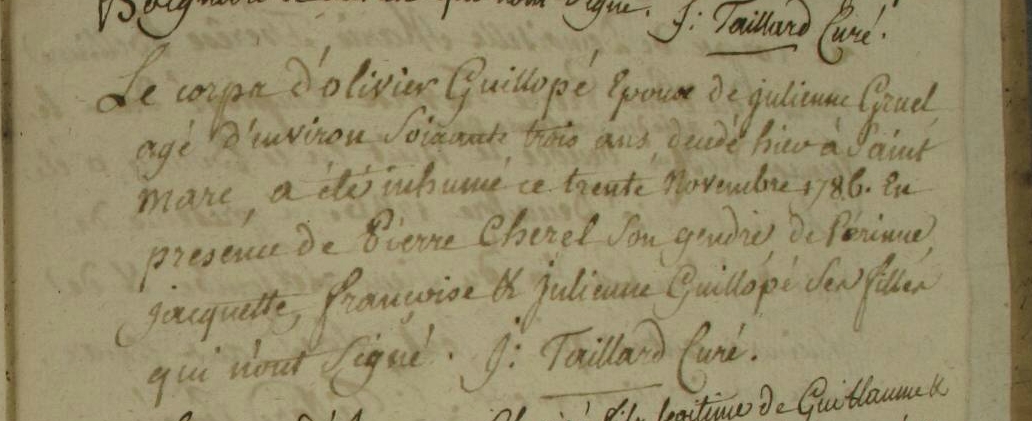 qui n'ont signé. J: Taillard Curé.
Le corps d'olivier Guillopé Epoux de julienne Gruel
agé d'environ soixante trois ans decedé hier à Saint
marc, a été inhumé ce trente Novembre 1786. En
presence de Pierre Cherel son gendre de Périnne,
jacquette, françoise & julienne Guillopé ses filles
qui n'ont signé. J: Taillard Curé.
fils legitime de Guillaume &